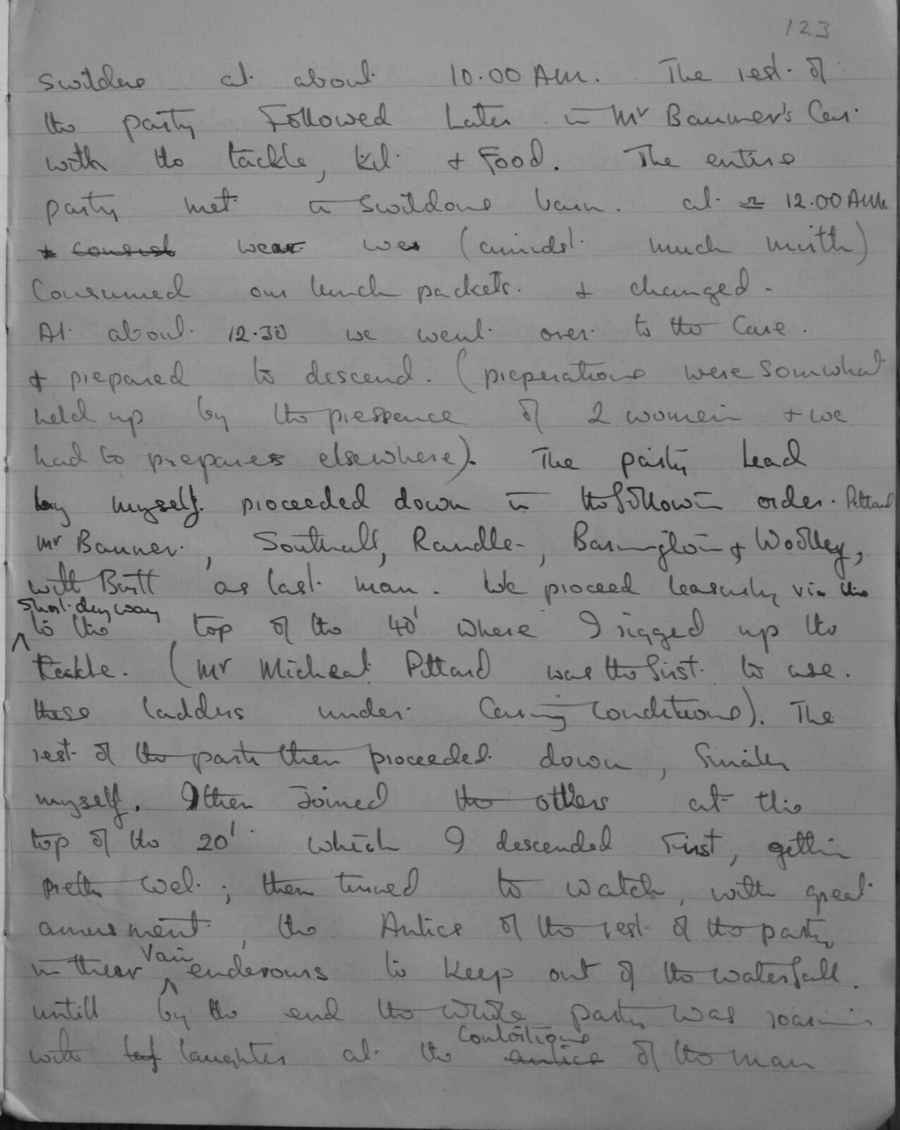 123
Swildons at about 10.00 AM. The rest of
the party Followed Later in Mr Banner's Car.
with the tackle, kit + Food. The entire
party met in Swildons barn. at ≃ 12.00 AM
we (amidst much mirth)
Consumed our lunch packets. + changed.
At about 12.30 we went over to the Cave.
+ prepared to descend. (preperations were Somwhat
held up by the pressence of 2 women + we
had to prepare elsewhere). The party Lead
by myself. proceeded down in the followin order. Pittard
Mr Banner, Southall, Randle, Barrington + Woolley,
with Britt as last man. We proceed leasurly via the
Short dry way
to the top of the 40' where I rigged up the
tackle. (Mr Micheal Pittard was the first to use.
these ladders under Caving Conditions). The
rest of the party then proceeded down,
myself. I then Joined the others at the
top of the 20' which I descended First, gettin
pretty wet; then turned to watch, with great
amusement, the Antics of the rest of the party
in thear Vain endevours to keep out of the waterfall.
untill by the end the whole party was roarin
with laughter at the Contortions of the man